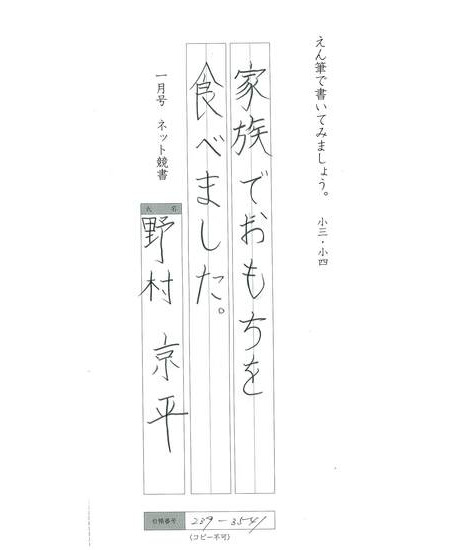 えん筆で書いてみましょう。　小三・小四
家族でおもちを
食べました。
一月号　ネット競書
氏名
野村　京平
台帳番号
239－3541
(コピー不可)